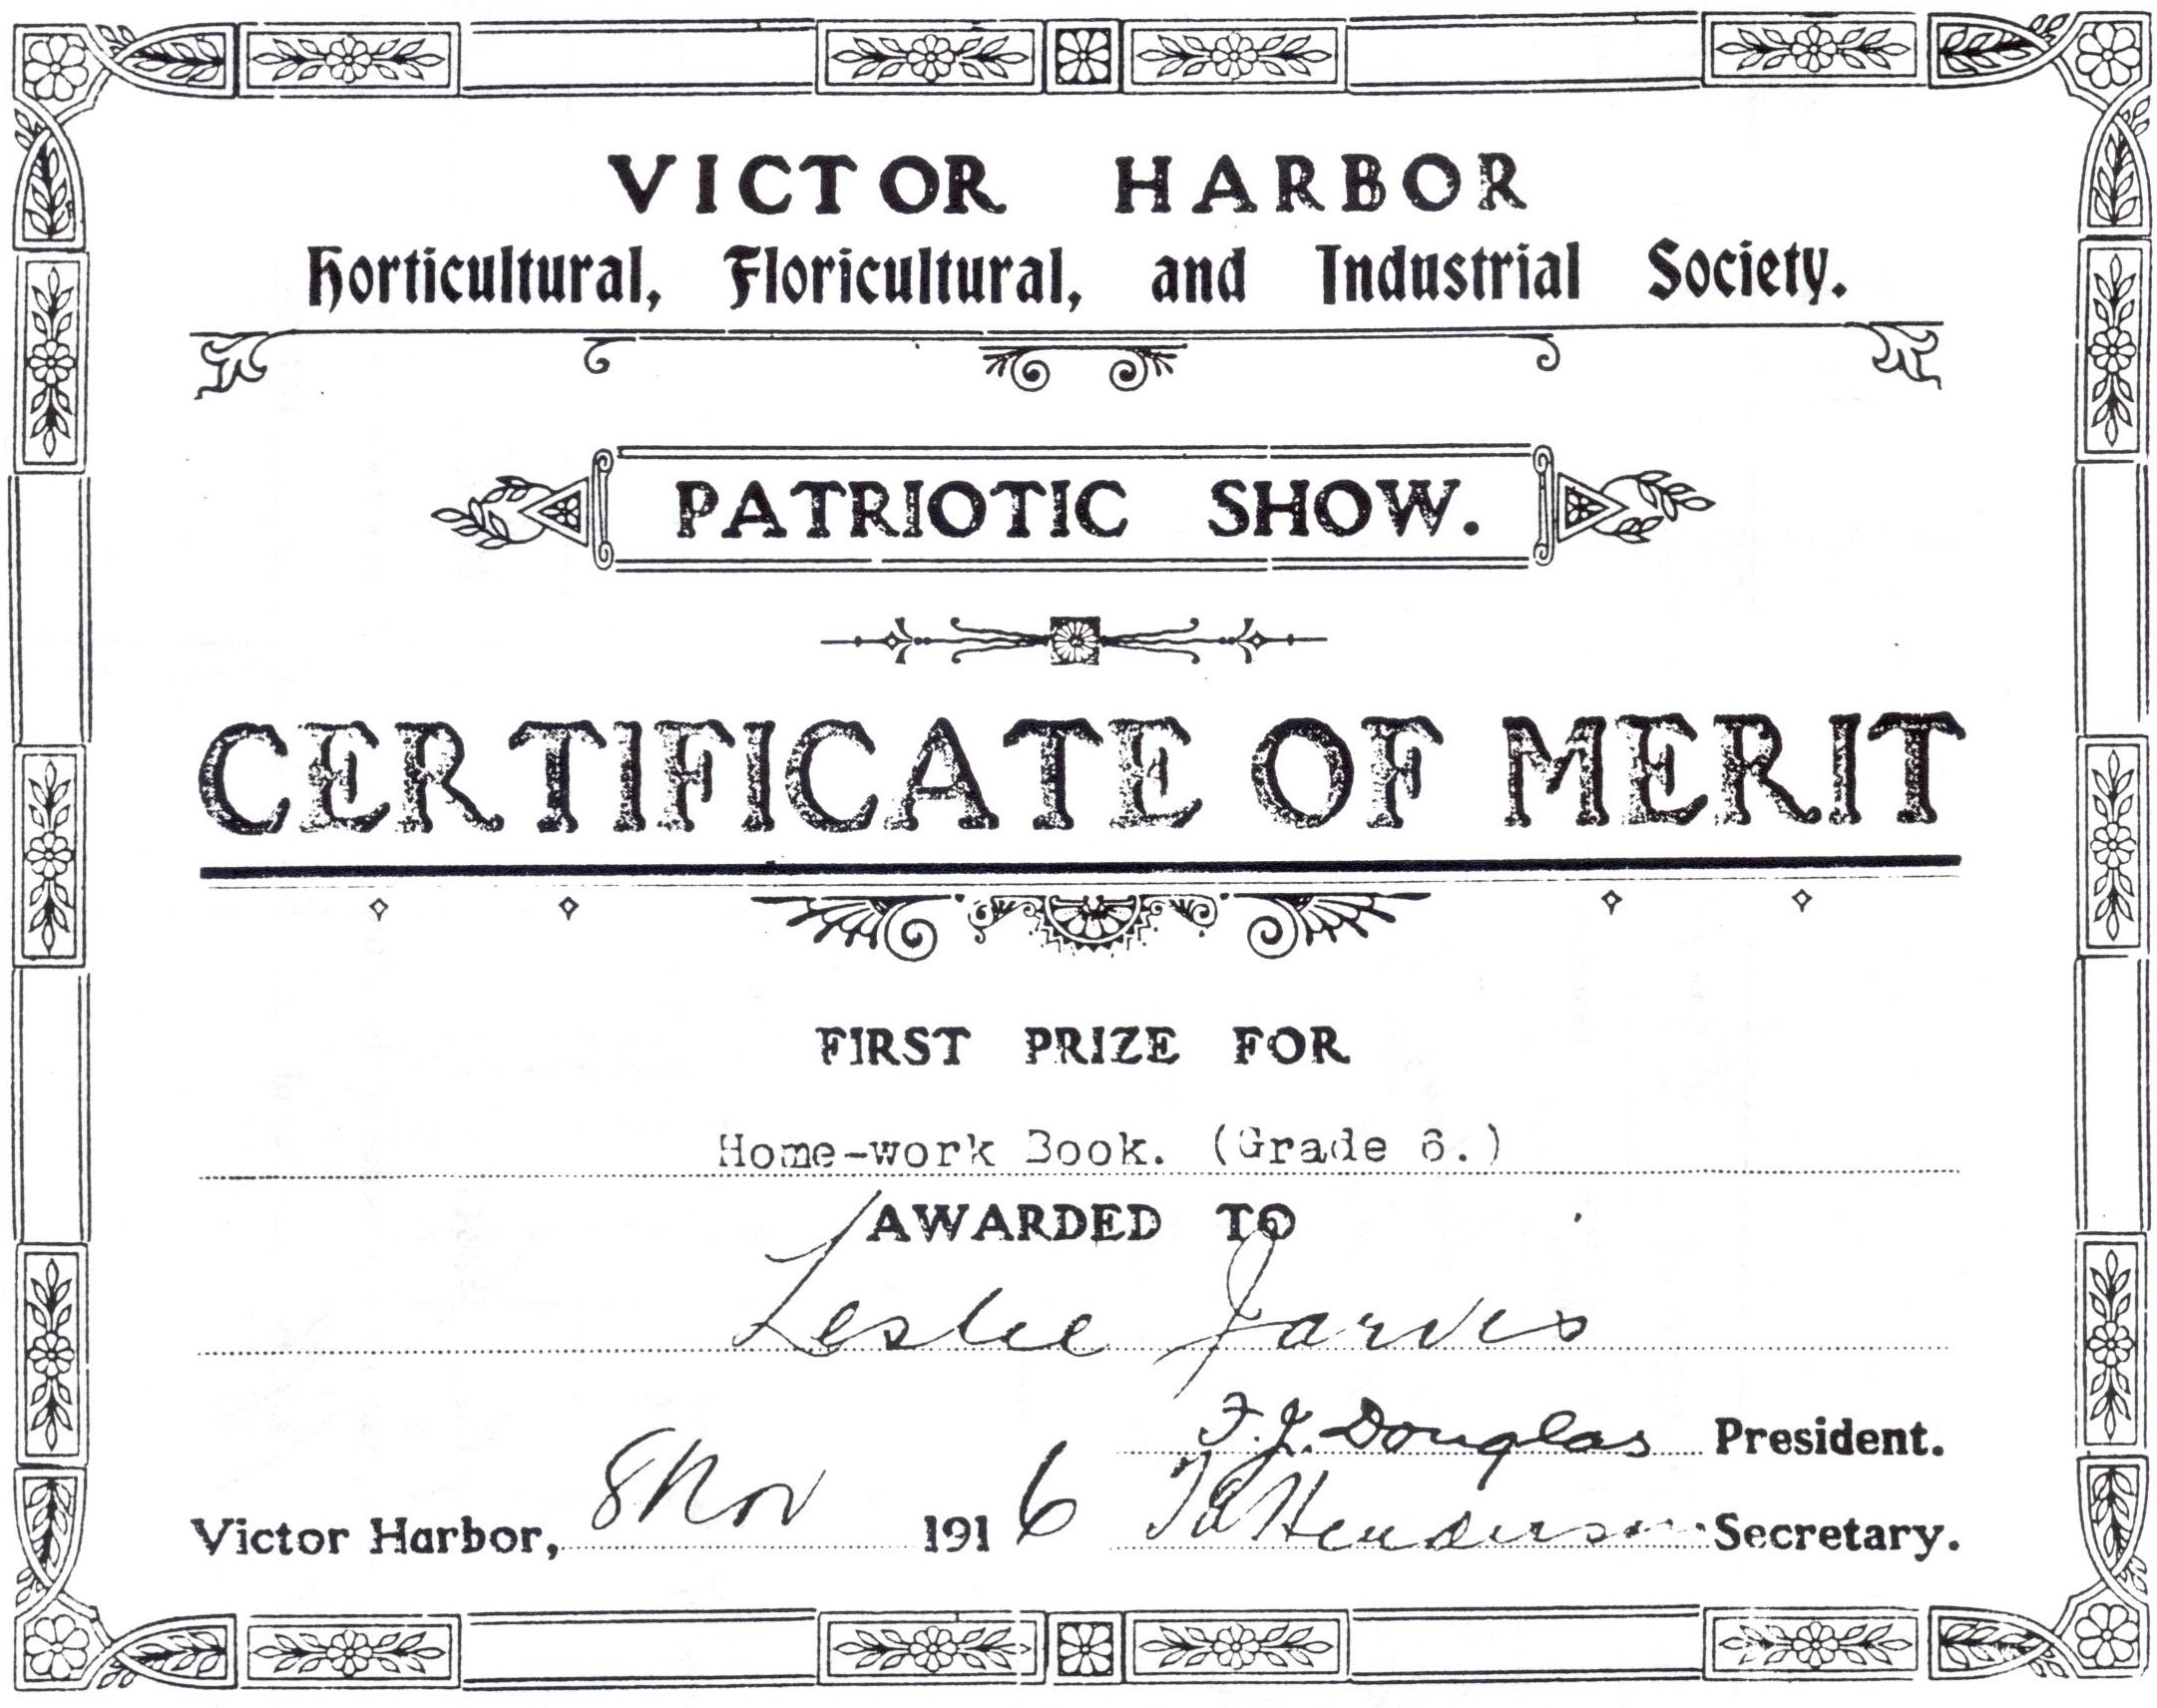 VICTOR HARBOR
Horticultural, Floricultural, and Industrial Society.
PATRIOTIC SHOW.
CERTIFICATE OF MERIT
FIRST PRIZE FOR
Home-work Book. (Grade 6.)
AWARDED TO
Leslie Jarvis
F.J. Douglas President.
Victor Harbor, 8 Nov 1916 Henderson Secretary.